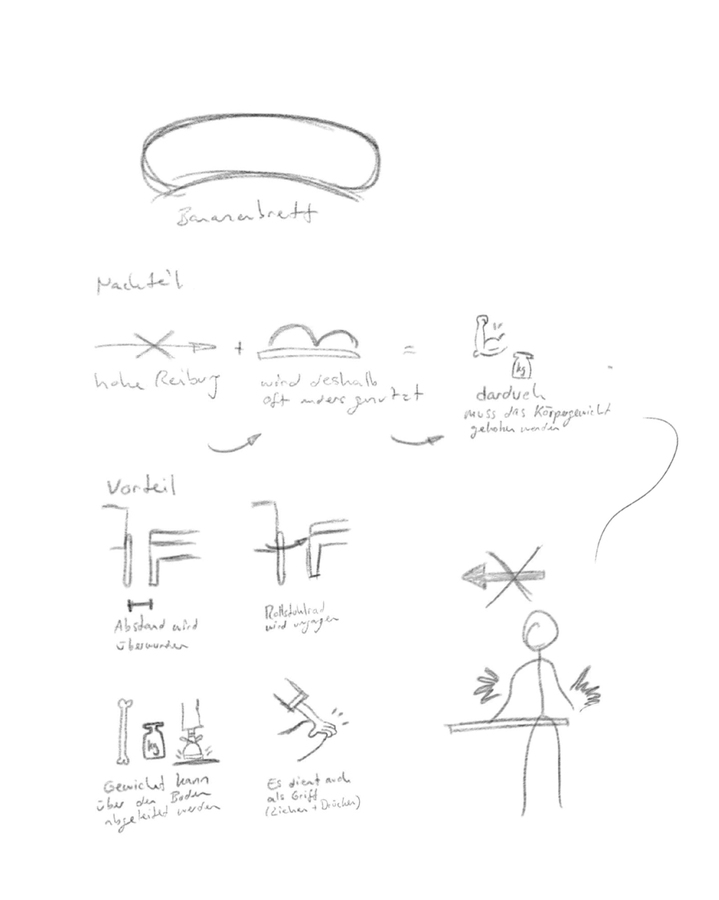 Bananenbrett
Nachteil
+
=
kg
hohe Reibung
wird deshalb
oft anders genutzt
dardurch
muss das Körpergewicht
gehoben werden
Vorteil
Abstand wird
überwunden
Rollstuhlrad
wird umgangen
kg
Gewicht kann
über den Boden
abgeleitet werden
Es dient auch
als Griff
(Ziehen + Drücken)